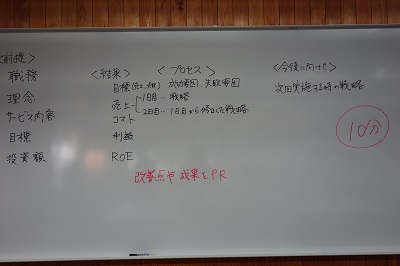 <前提>
職務
理念
サービス内容
目標
投資額
<結果>
目標(売上、利益)
売上
コスト
利益
ROE
<プロセス>
成功要因、失敗要因
1日目…戦略
2日目…1日目から修正した戦略
<今後に向けて>
次回実施する時の戦略
10分
改善点や成果をPR